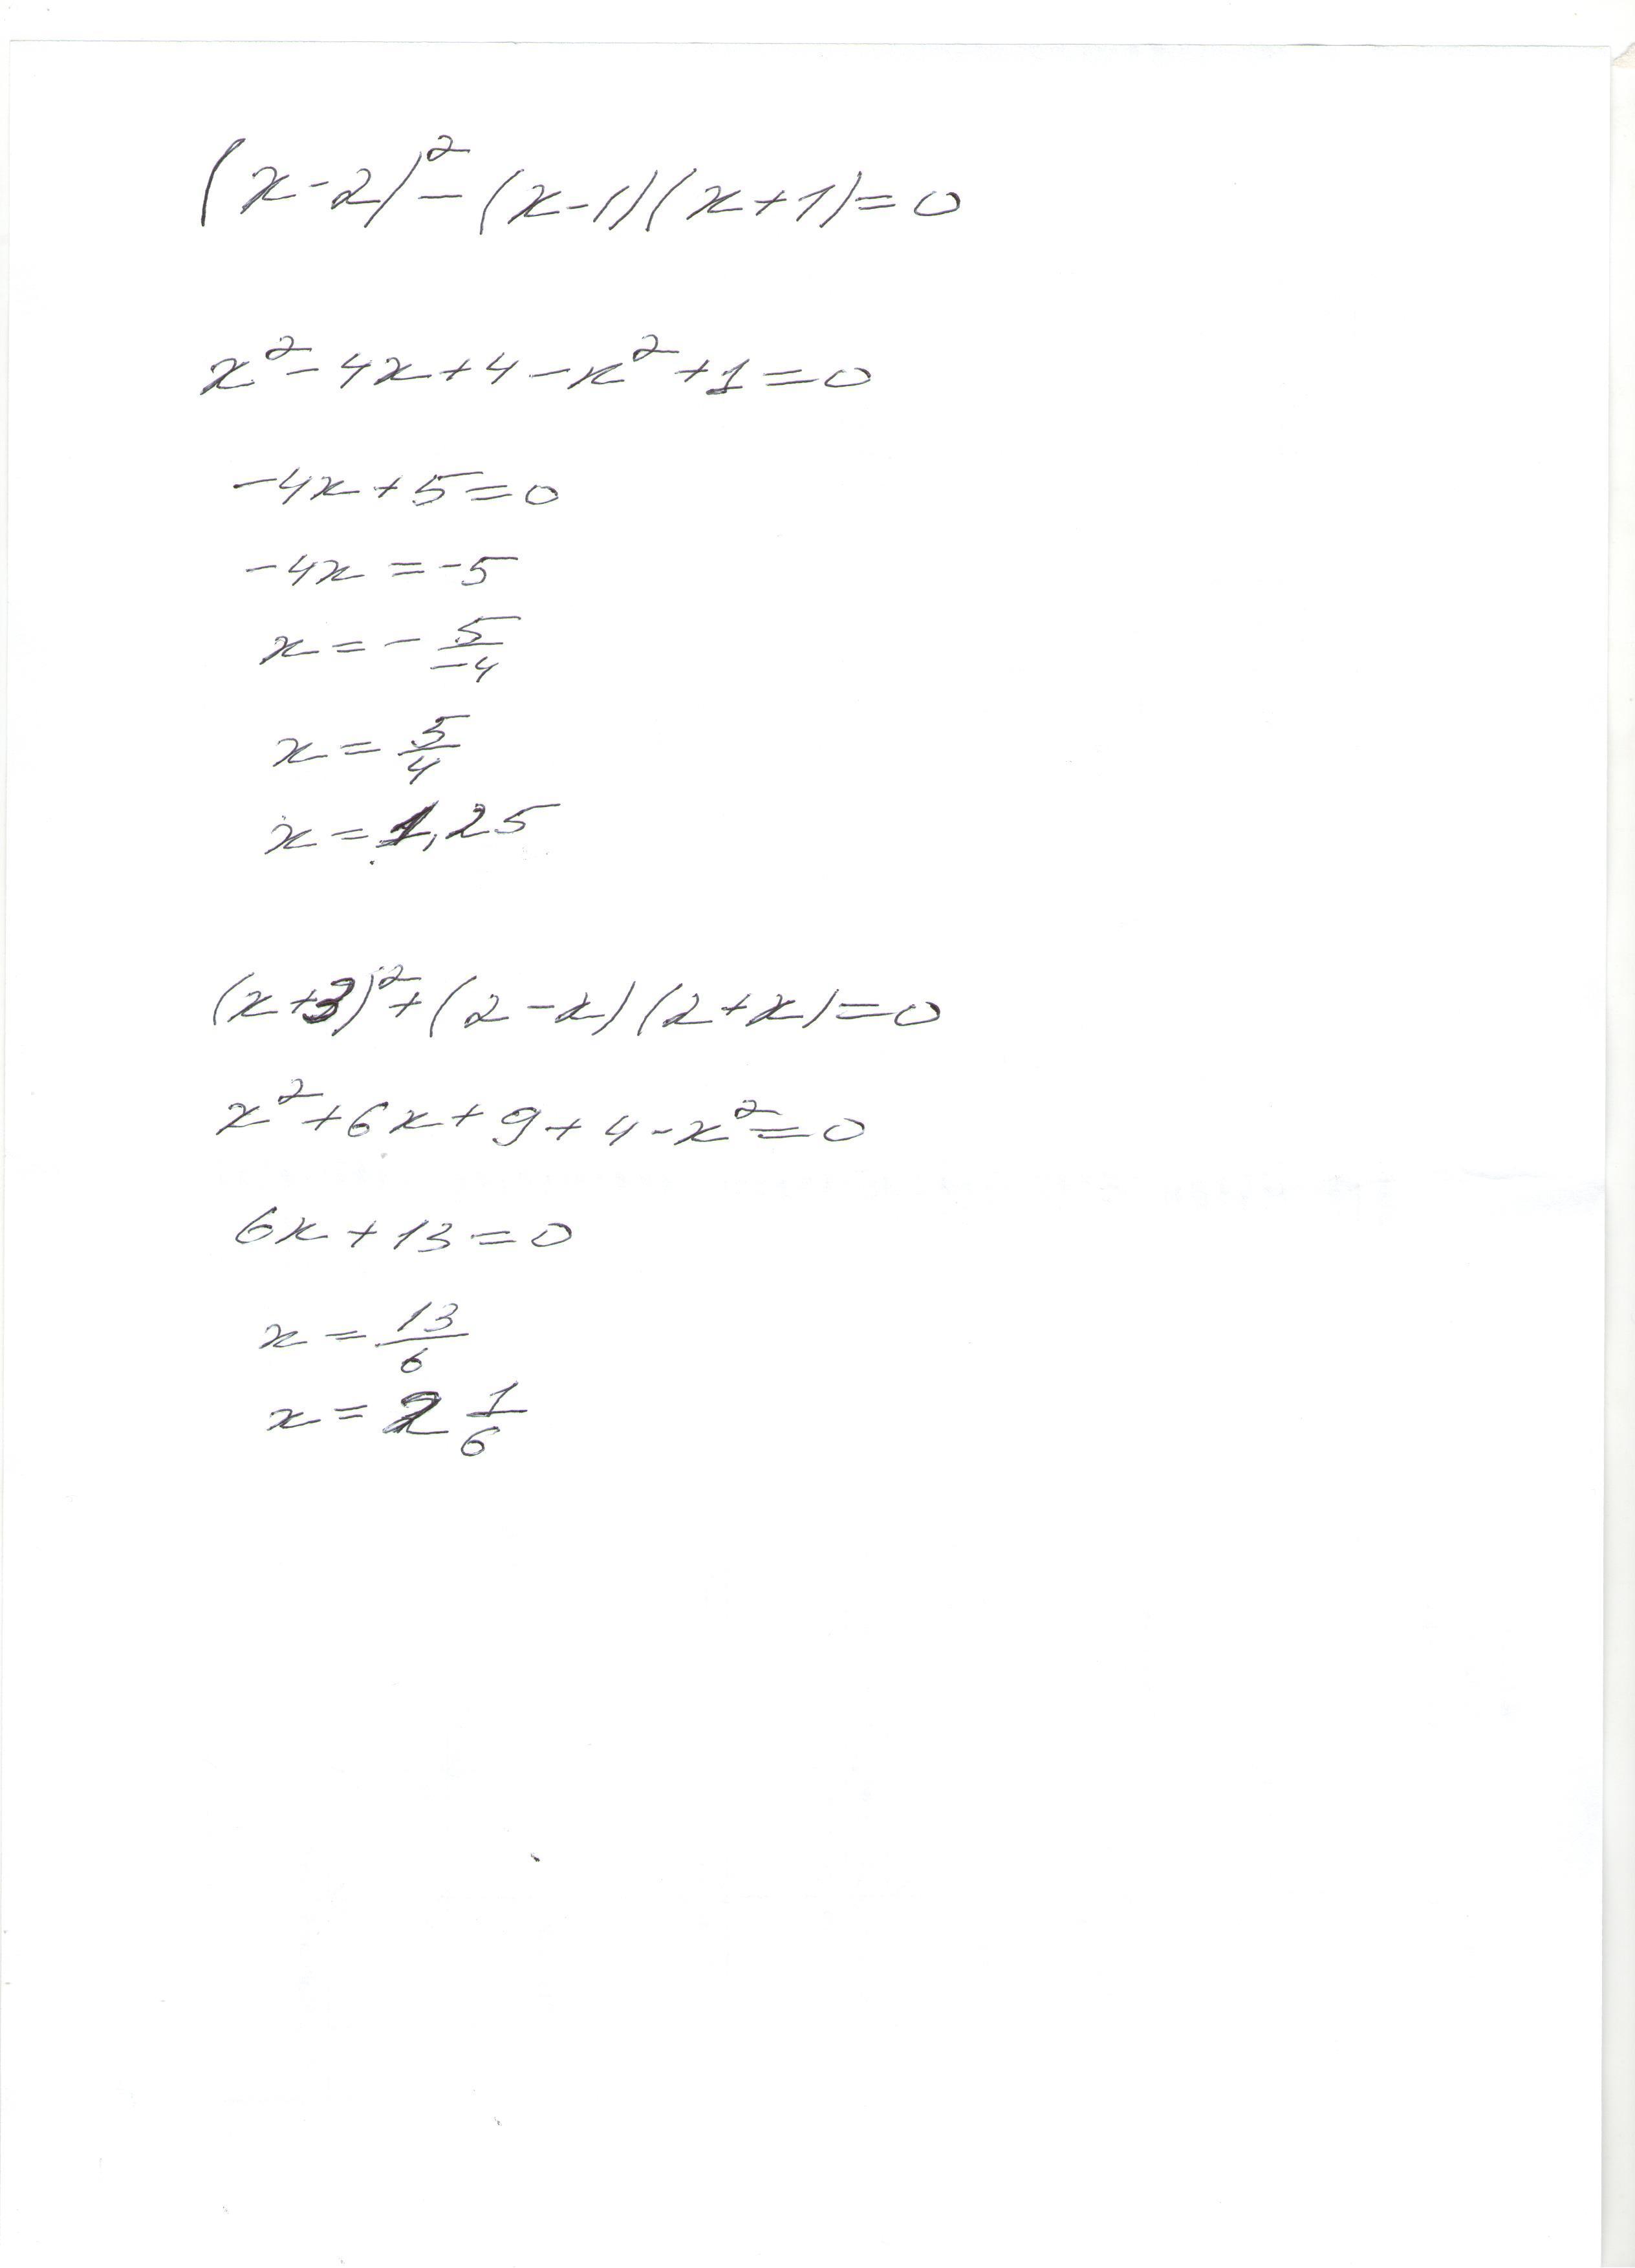 (x-2)²-(x-1)(x+1)=0
x²-4x+4-x²+1=0
-4x+5=0
-4x=-5
x=-5/-4
x=5/4
x=1,25
(x+3)²+(2-x)(2+x)=0
x²+6x+9+4-x²=0
6x+13=0
x=13/6
x=2 1/6